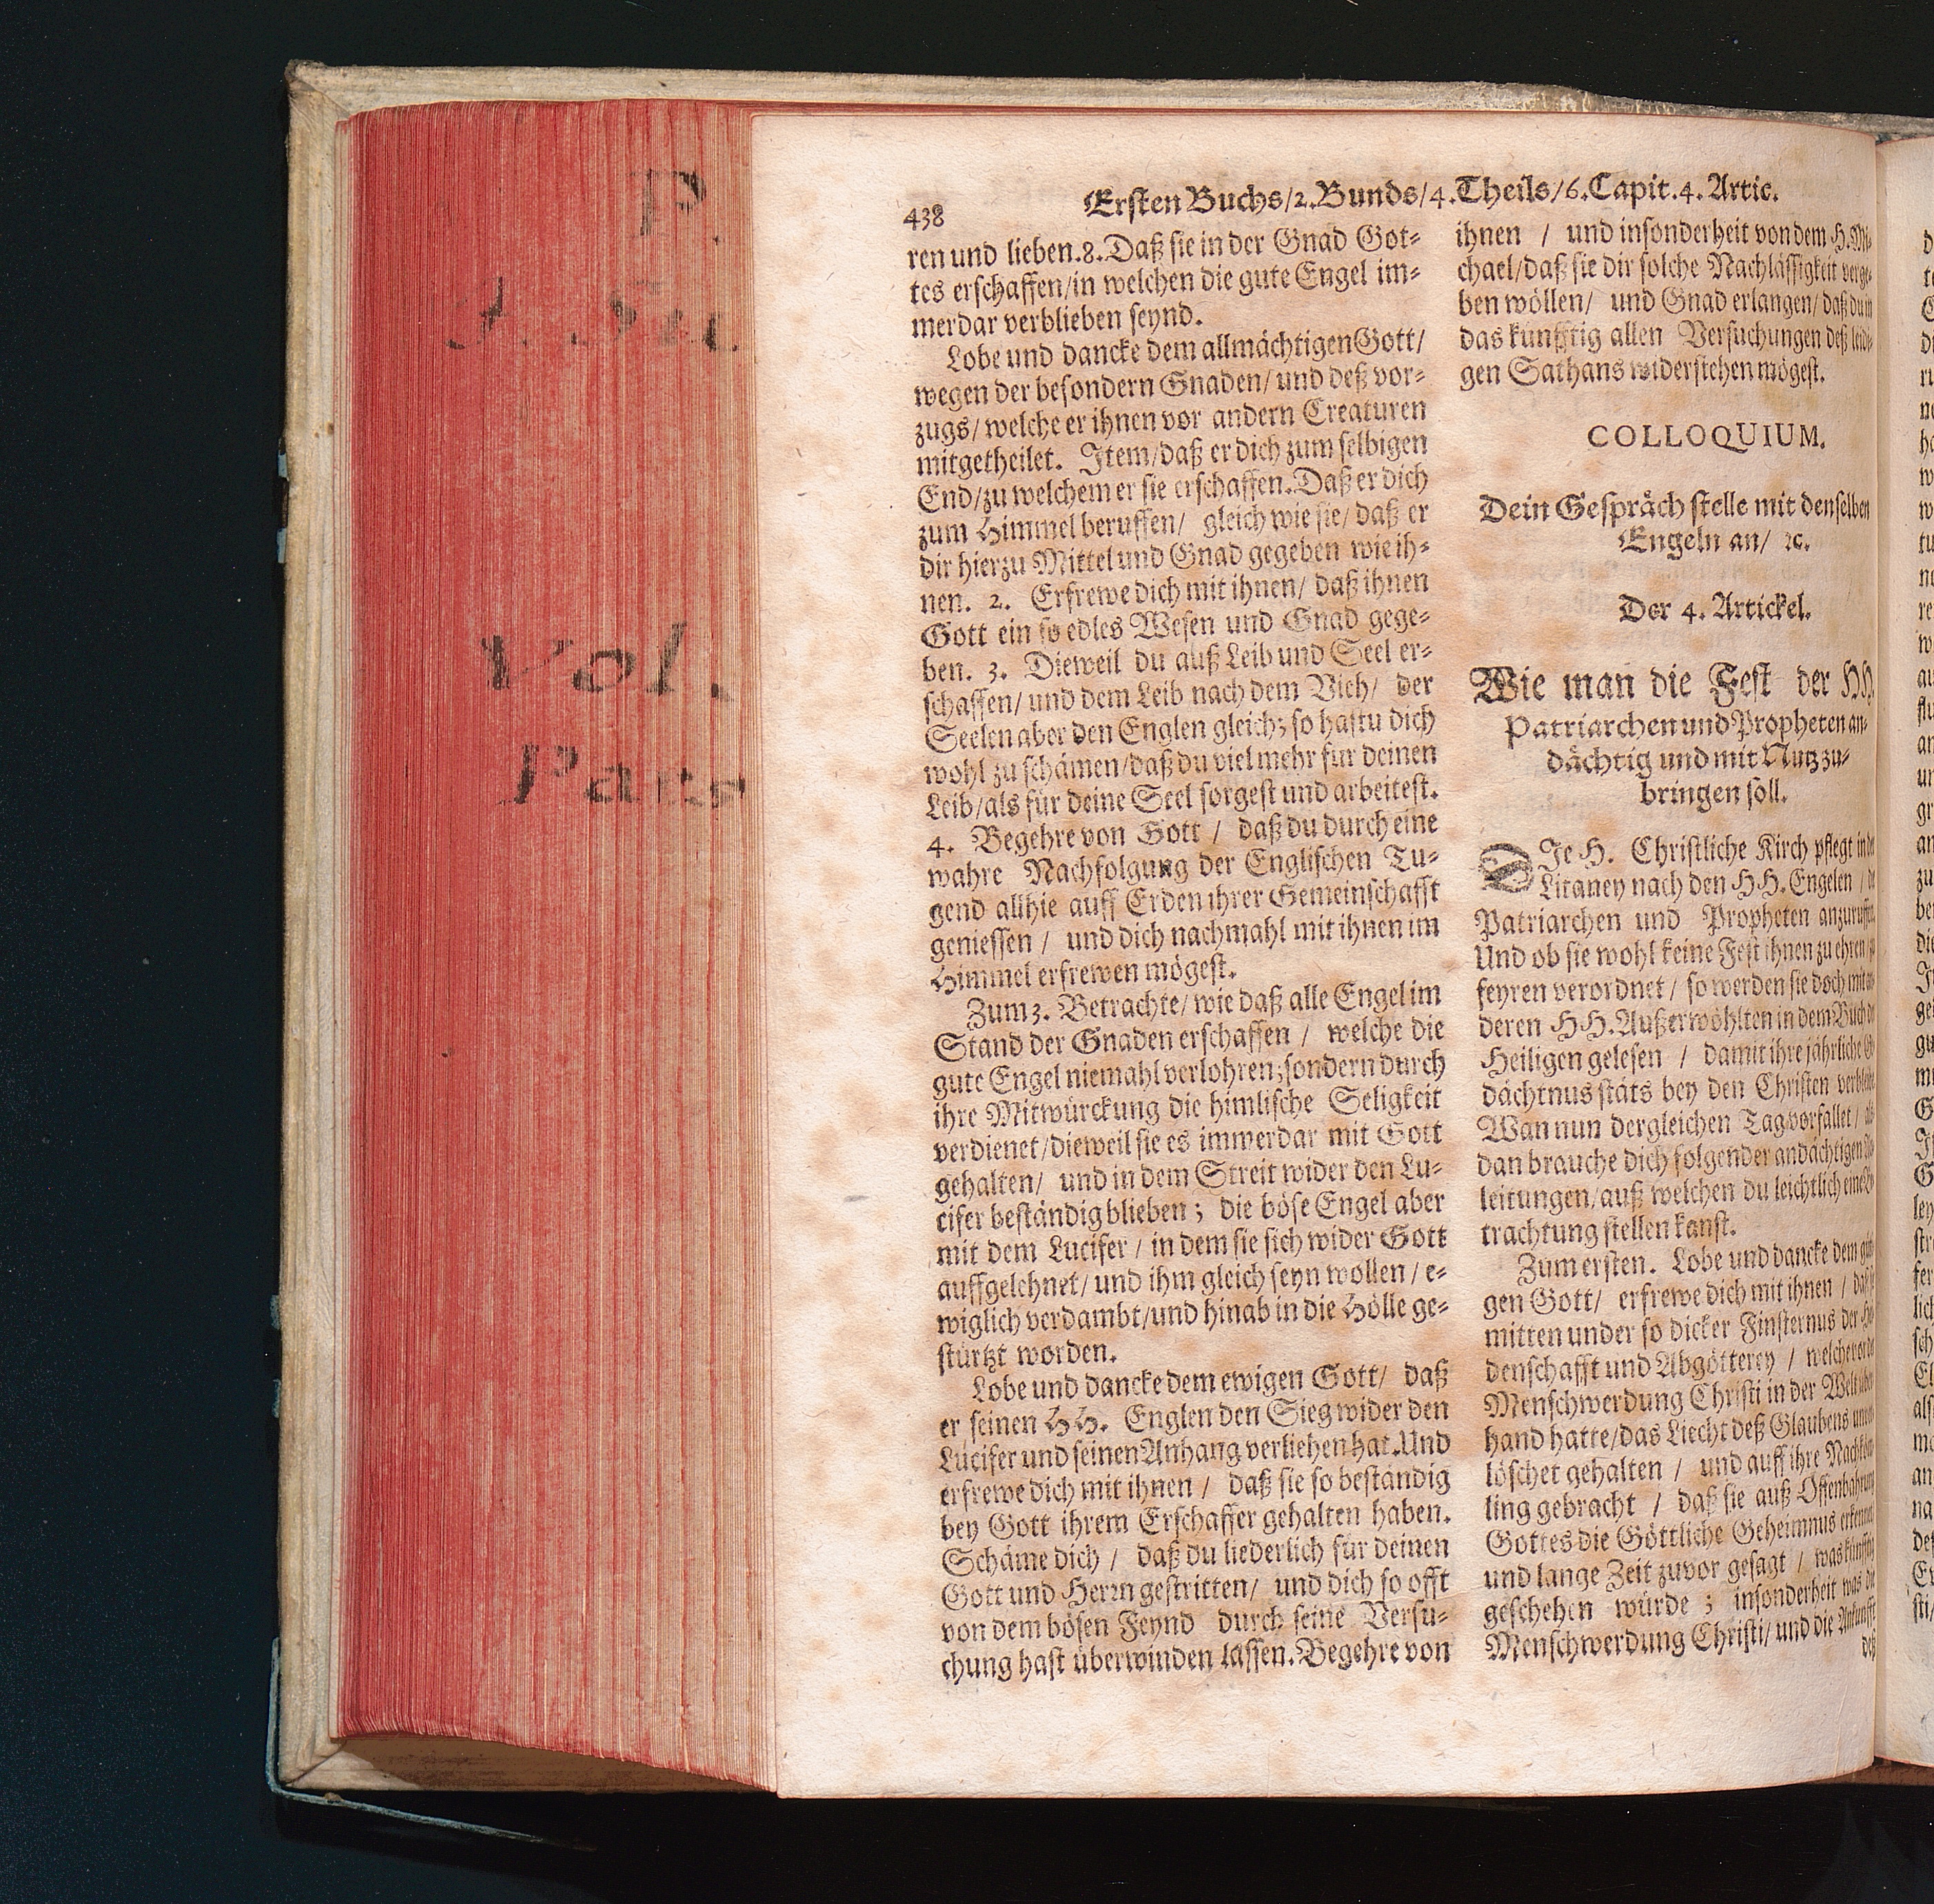 P.
Vol.
Pars
438
Ersten Buchs/2.Bunds/4.Theils/6.Capit.4.Artic.
ren und lieben.8.Daß sie in der Gnad Got⸗
tes erschaffen/in welchen die gute Engel im⸗
merdar verblieben seynd.
Lobe und dancke dem allmächtigen Gott/
wegen der besondern Gnaden/ und deß vor⸗
zugs/ welche er ihnen vor andern Creaturen
mitgetheilet. Item/daß er dich zum selbigen
End/zu welchem er sie erschaffen. Daß er dich
zum Himmel beruffen/ gleich wie sie/ daß er
dir hierzu Mittel und Gnad gegeben wie ih⸗
nen. 2. Erfrewe dich mit ihnen/ daß ihnen
Gott ein so edles Wesen und Gnad gege⸗
ben. 3. Dieweil du auß Leib und Seel er⸗
schaffen/ und dem Leib nach dem Vieh/ der
Seelen aber den Englen gleich; so hastu dich
wohl zu schämen/daß du viel mehr für deinen
Leib/als für deine Seel sorgest und arbeitest.
4. Begehre von Gott / daß du durch eine
wahre Nachfolgung der Englischen Tu⸗
gend allhie auff Erden ihrer Gemeinschafft
geniessen / und dich nachmahl mit ihnen im
Himmel erfrewen mögest.
Zum 3. Betrachte/ wie daß alle Engel im
Stand der Gnaden erschaffen / welche die
gute Engel niemahl verlohren; sondern durch
ihre Mitwürckung die himlische Seligkeit
verdienet/dieweil sie es immerdar mit Gott
gehalten/ und in dem Streit wider den Lu⸗
cifer beständig blieben; die böse Engel aber
mit dem Lucifer / in dem sie sich wider Gott
auffgelehnet/ und ihm gleich seyn wollen / e⸗
wiglich verdambt/und hinab in die Hölle ge⸗
stürtzt worden.
Lobe und dancke dem ewigen Gott/ daß
er seinen HH. Englen den Sieg wider den
Lucifer und seinen Anhang verliehen hat. Und
erfrewe dich mit ihnen / daß sie so beständig
bey Gott ihrem Erschaffer gehalten haben.
Schäme dich / daß du liederlich für deinen
Gott und Herrn gestritten/ und dich so offt
von dem bösen Feynd durch seine Versu⸗
chung hast überwinden lassen. Begehre von
ihnen / und insonderheit von dem H. Mi⸗
chael/daß sie dir solche Nachlässigkeit verge⸗
ben wöllen/ und Gnad erlangen/ daß du in
das künfftig allen Versuchungen deß leidi⸗
gen Sathans widerstehen mögest.
COLLOQUIUM.
Dein Gespräch stelle mit denselben
Engeln an/ ꝛc.
Der 4. Artickel.
Wie man die Fest der HH.
Patriarchen und Propheten an⸗
dächtig und mit Nutz zu⸗
bringen soll.
DIe H. Christliche Kirch pflegt in der
Litaney nach den HH. Engelen /
Patriarchen und Propheten anzuruffen.
Und ob sie wohl keine Fest ihnen zu ehren
feyren verordnet / so werden sie doch mit
deren HH. Außerwöhlten in dem Buch
Heiligen gelesen / damit ihre jährliche
dächtnus stäts bey den Christen verbleibe.
Wan nun dergleichen Tag vorfallet /
dan brauche dich folgender andächtigen
leitungen/auß welchen du leichtlich eine
trachtung stellen kanst.
Zum ersten. Lobe und dancke dem
gen Gott/ erfrewe dich mit ihnen /
mitten under so dicker Finsternus der
denschafft und Abgötterey / welche
Menschwerdung Christi in der Welt
hand hatte/das Liecht deß Glaubens
löschet gehalten / und auff ihre
ling gebracht / daß sie auß Offenbahrung
Gottes die Göttliche Geheimnus
und lange Zeit zuvor gesagt / was
geschehen würde ; insonderheit was
Menschwerdung Christi/ und die Ankunfft
deß